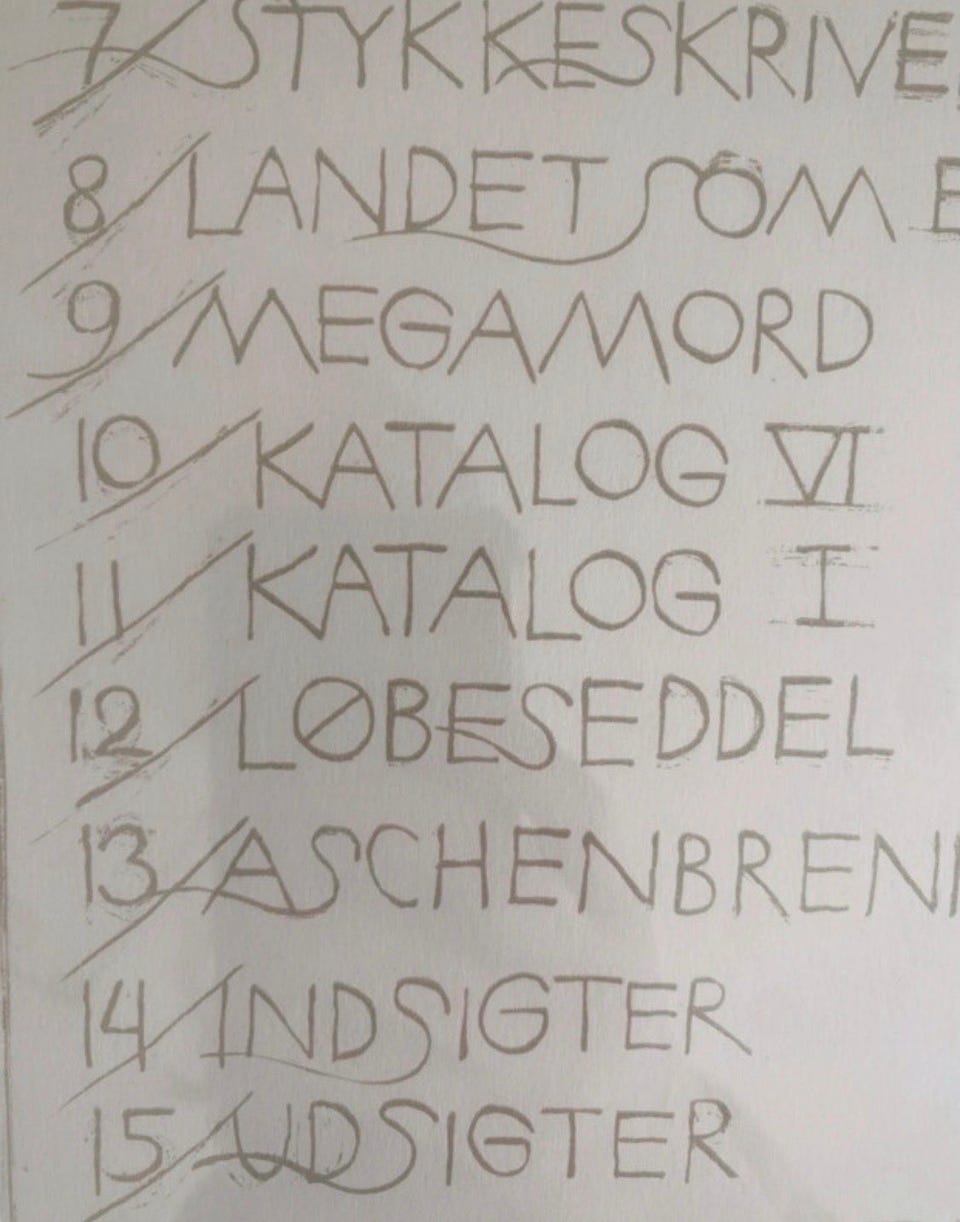 7/ STYKKESKRIVE
8/ LANDET SOM
9/ MEGAMORD
10/ KATALOG VI
11/ KATALOG I
12/ LØBESEDDEL
13/ ASCHENBREN
14/ INDSIGTER
15/ UDSIGTER